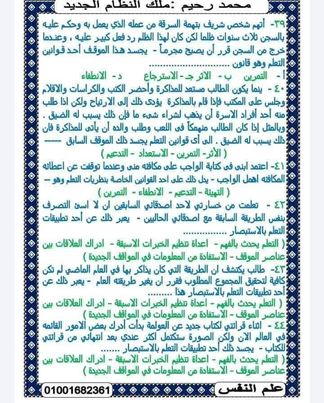 محمد رحيم :ملك النظام الجديد
٣٩- أتهم شخص شريف بتهمة السرقة من عمله الذي يعمل به وحكم عليه
بالسجن ثلاث سنوات ظلما لكن كان لهذا الظلم رد فعل كبير عليه ، وعندما
خرج من السجن قرر أن يصبح مجرماً - يجسد هذا الموقف أحد قوانين
التعلم وهو قانون ..................
أ - التمرين ب - الأثر جـ - الاسترجاع د - الانطفاء
٤٠ - بينما يكون الطالب مستعد للمذاكرة وأحضر الكتب والكراسات والأقلام
وجلس على المكتب فإذا قام بالمذاكرة يؤدى ذلك إلى الارتياح ولكن اذا طلب
منه أحد أفراد الاسرة أن يذهب لشراء شيء ما فإن ذلك يسبب له الضيق .
وبالمثل إذا كان الطالب منهمكاً فى اللعب وطلب والده أن يأتى للمذاكرة فإن
ذلك يسبب له الضيق . الى أى قوانين التعلم يجسد ذلك الموقف السابق ------
( الأثر- التمرين - الاستعداد - التدعيم )
٤١ - اعتمد ابنى فى كتابة الواجب على مكافأته منى وعندما توقفت عن اعطائه
المكافاه اهمل الواجب - يدل ذلك على احد القوانين الخاصة بنظريات التعلم وهو --
( التهيئة - التدعيم - الانطفاء - التمرين )
٤٢ - تعلمت من خسارتى لاحد اصدقائى السابقين ان لا اسئ التصرف
بنفس الطريقة السابقة مع اصدقائى الحاليين - يعبر ذلك عن أحد تطبيقات
التعلم بالاستبصار ..................
( التعلم يحدث بالفهم - اعداة تنظيم الخبرات الاسبقة - ادراك العلاقات بين
عناصر الموقف - الاستفادة من المعلومات فى المواقف الجديدة )
٤٣- طالب يكتشف ان الطريقة التى كان يذاكر بها فى العام الماضى لم تكن
كافية لتحقيق المجموع المطلوب فقرر ان يغير طريقته العام - يعبر ذلك عن
أحد تطبيقات التعلم بالاستبصار هذا
( التعلم يحدث بالفهم - اعداة تنظيم الخبرات الاسبقة - ادراك العلاقات بين
عناصر الموقف - الاستفادة من المعلومات فى المواقف الجديدة )
٤٤- اثناء قرائتى لكتاب جديد عن العولمة بدأت أدرك بعض الامور القائمه
فى العالم الان ولكن الصورة ستكتمل اكثر عندى بعد انتهائي من قرائتى
للكتاب - يجسد ذلك أحد تطبيقات التعلم بالاستبصار ........
( التعلم يحدث بالفهم - اعداة تنظيم الخبرات الاسبقة - ادراك العلاقات بين
عناصر الموقف - الاستفادة من المعلومات فى المواقف الجديدة )
علم النفس
01001682361